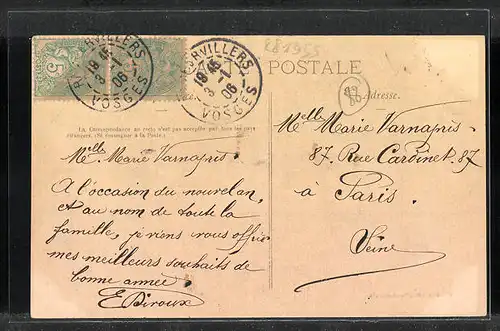 RERVILLERS
18 15
3 - 1
06
VOSGES
RERVILLERS
18 15
3 - 1
06
VOSGES
5
POSTALE
Adresse.
La Correspondance au recto n'est pas acceptée par tous les pays
étrangers. (Se renseigner à la Poste.)
Melle Marie Varnapris.
A l'occasion du nouvel an,
et au nom de toute la
famille, je viens vous offrir
mes meilleurs souhaits de
bonne année.
E Diroux
Melle Marie Varnapris
87. Rue Cardinet. 87
à Paris.
Seine